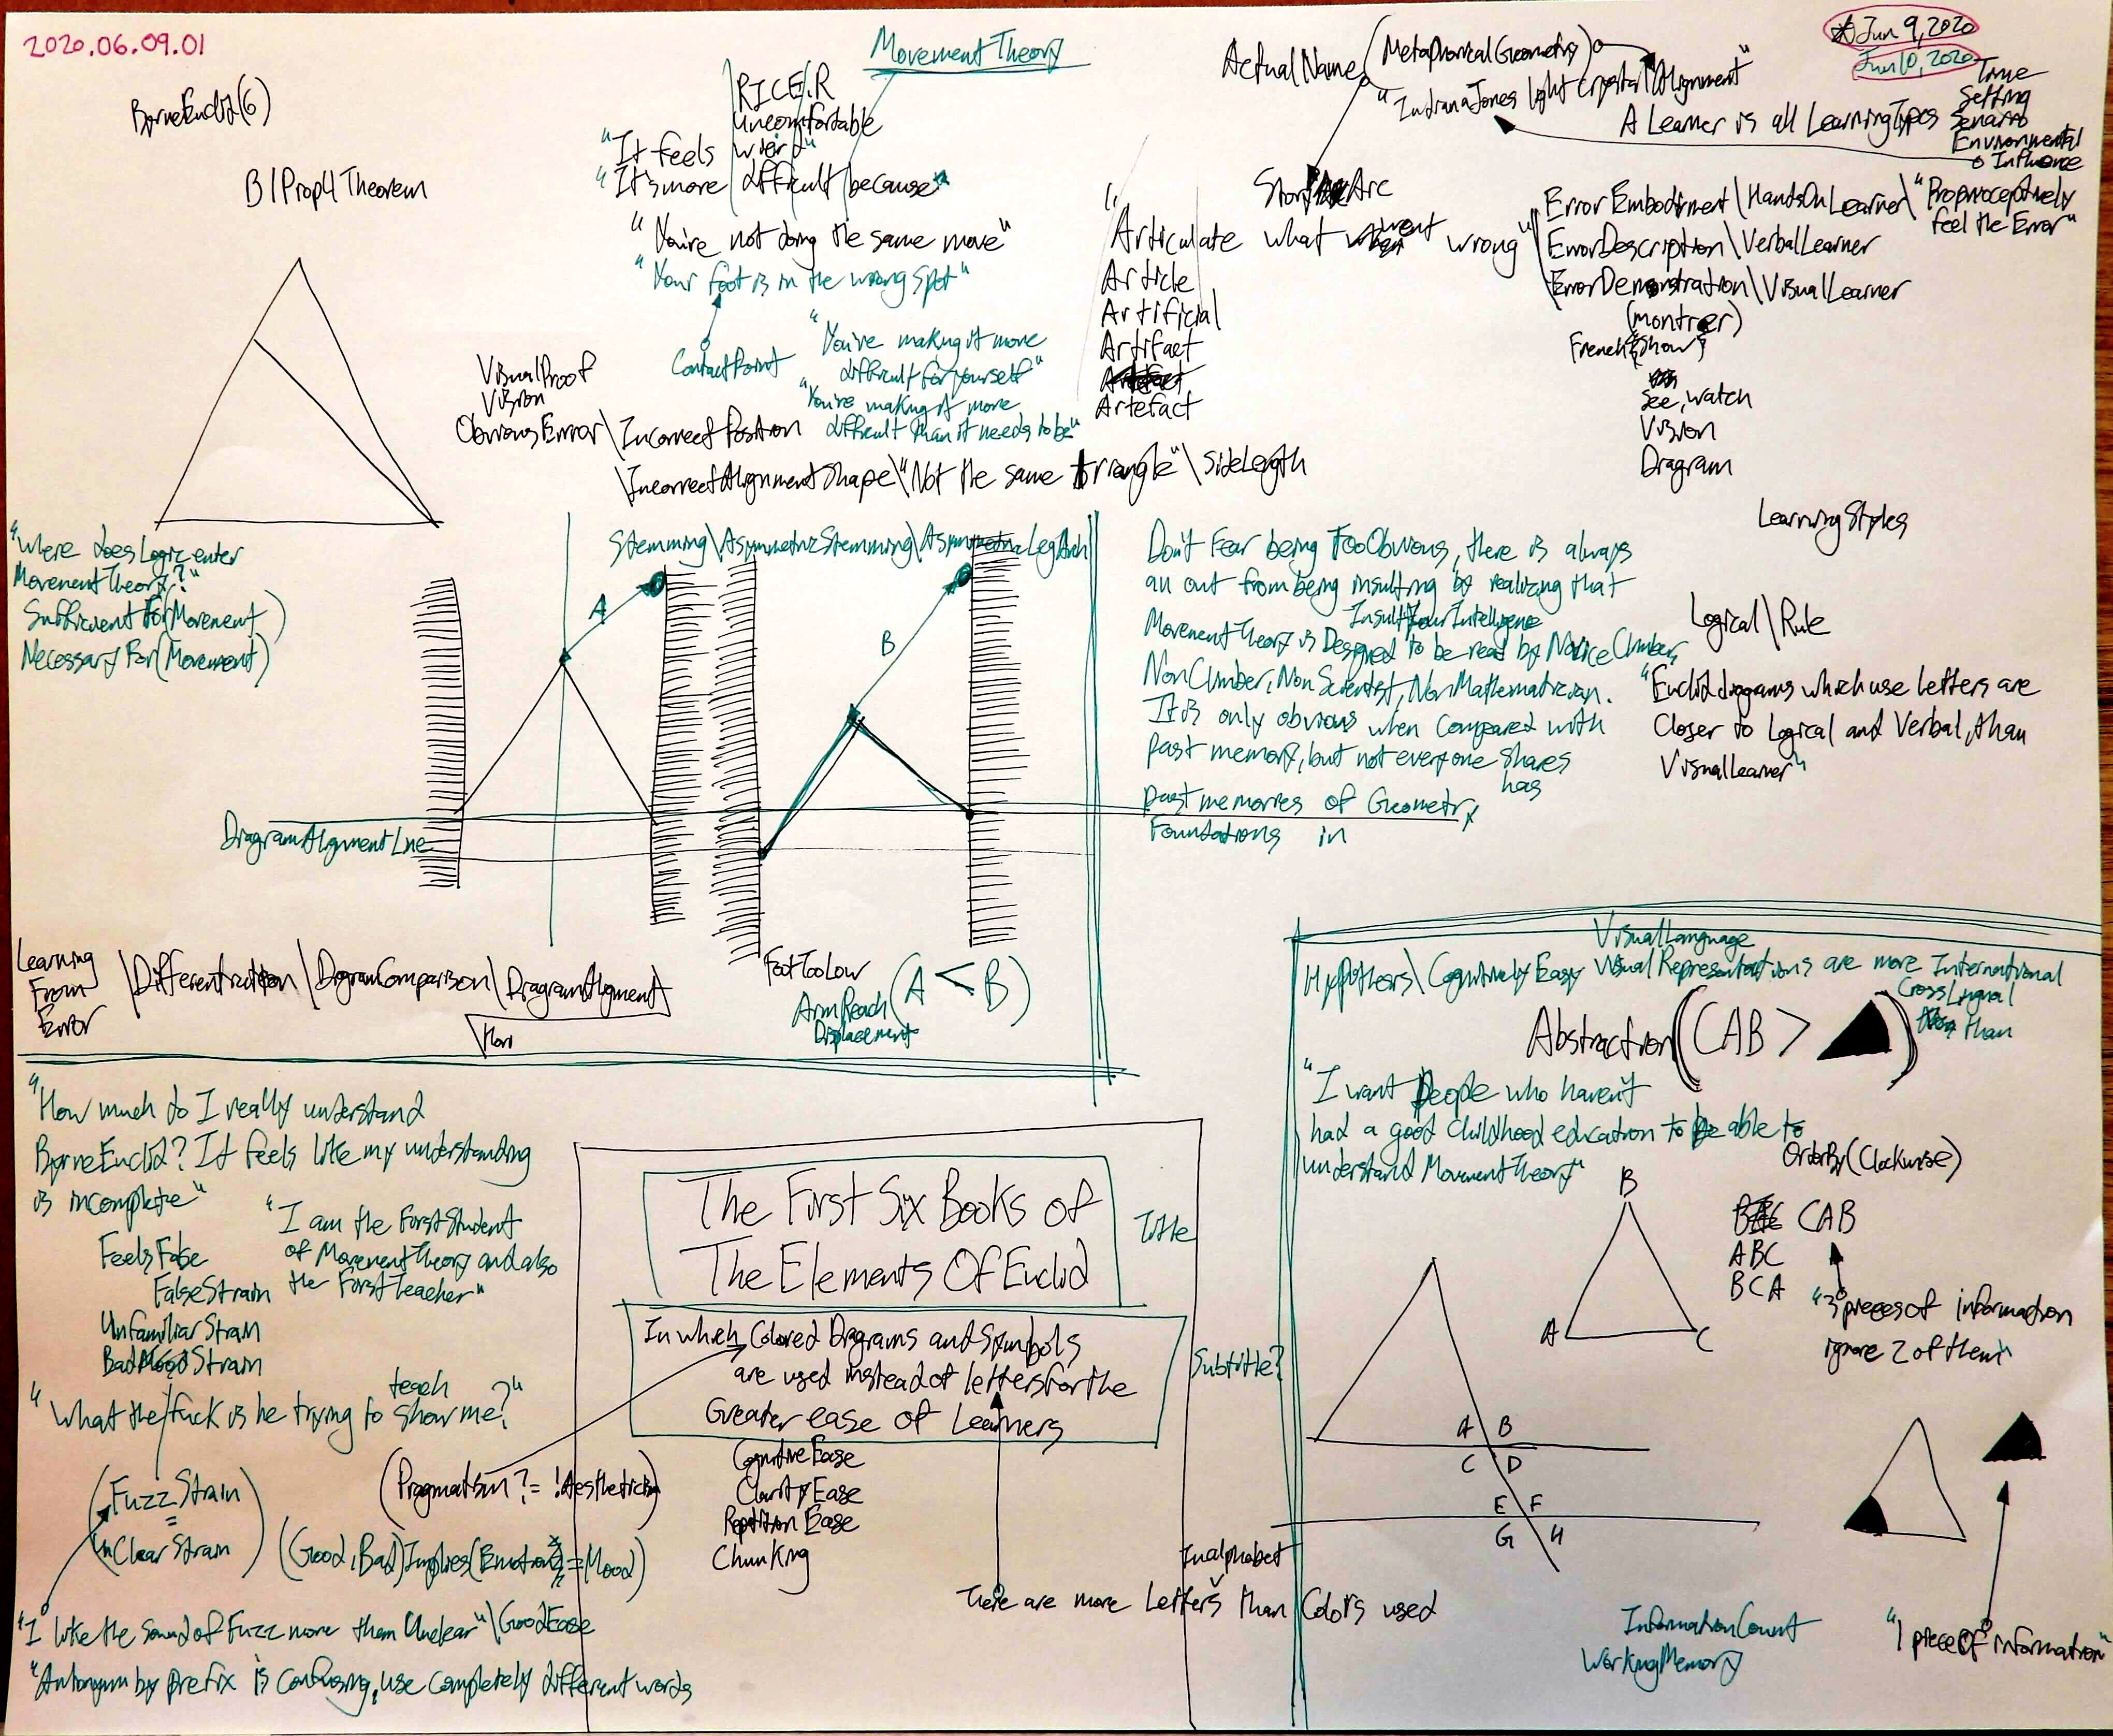 2020.06.09.01
MovementTheory
Jun 9, 2020
Jun 10, 2020
ByrneEuclid(6)
B1Prop4Theorem
RICE/R
Uncomfortable
"It feels weird"
"It's more difficult because"
"You're not doing the same move"
"Your foot is in the wrong spot"
ContactPoint
"You're making it more
difficult for yourself"
"You're making it more
difficult than it needs to be"
VisualProof
Vision
ObviousError\IncorrectPosition
\IncorrectAlignmentShape\"Not the same triangle"\SideLength
ActualName(MetaphoricalGeometry)
"IndianaJones light crystal Alignment"
A Learner is all LearningTypes
Time
Setting
Senario
Environmental
Influence
Story Arc
"Articulate what went wrong"
Article
Artificial
Artifact
Artefact
ErrorEmbodiment\HandsOnLearner\"Proprioceptively
feel the Error"
ErrorDescription\VerbalLearner
ErrorDemonstration\VisualLearner
(montrer)
French{Show}
See, watch
Vision
Diagram
LearningStyles
Logical\Rule
"Euclid diagrams which use letters are
Closer to Logical and Verbal, than
VisualLearner"
"Where does Logic enter
MovementTheory?"
Sufficient For(Movement)
Necessary For(Movement)
Stemming\AsymmetricStemming\AsymmetricLegArch
A
B
DiagramAlignmentLine
Don't Fear being TooObvious, there is always
an out from being insulting by realizing that
InsultYourIntelligence
MovementTheory is Designed to be read by NoviceClimber,
NonClimber, NonScientist, NonMathematician.
It is only obvious when compared with
past memory, but not everyone shares
has
past memories of Geometry
Foundations in
Learning
From
Error
\Differentiation\DiagramComparison\DiagramAlignment
\Hori
FootTooLow
ArmReach(A < B)
Displacement
VisualLanguage
Hypothesis\Cognitively Easy Visual Representations are more International
CrossLingual
than
Abstraction(CAB > )
"I want People who haven't
had a good childhood education to be able to
understand MovementTheory"
OrderBy(Clockwise)
B
A
C
CAB
ABC
BCA
"3 pieces of information
ignore 2 of them"
A B
C D
E F
G H
InformationCount
WorkingMemory
"1 piece of information"
"How much do I really understand
ByrneEuclid? It feels like my understanding
is incomplete"
FeelsFalse
FalseStrain
UnfamiliarStrain
BadMoodStrain
"I am the FirstStudent
of MovementTheory and also
the FirstTeacher"
teach
"What the fuck is he trying to show me?"
(FuzzStrain
=
UnClearStrain)
(Pragmatism ?= !Aesthetics)
(Good, Bad)Implies(Emotion = Mood)
"I like the sound of Fuzz more than Unclear"\GoodEase
"Antonym by prefix is confusing, use completely different words
The First Six Books of
The Elements Of Euclid
Title
In which Colored Diagrams and Symbols
are used instead of letters for the
Greater ease of Learners
Subtitle?
CognitiveEase
ClarityEase
RepetitionEase
Chunking
In alphabet
There are more Letters than Colors used